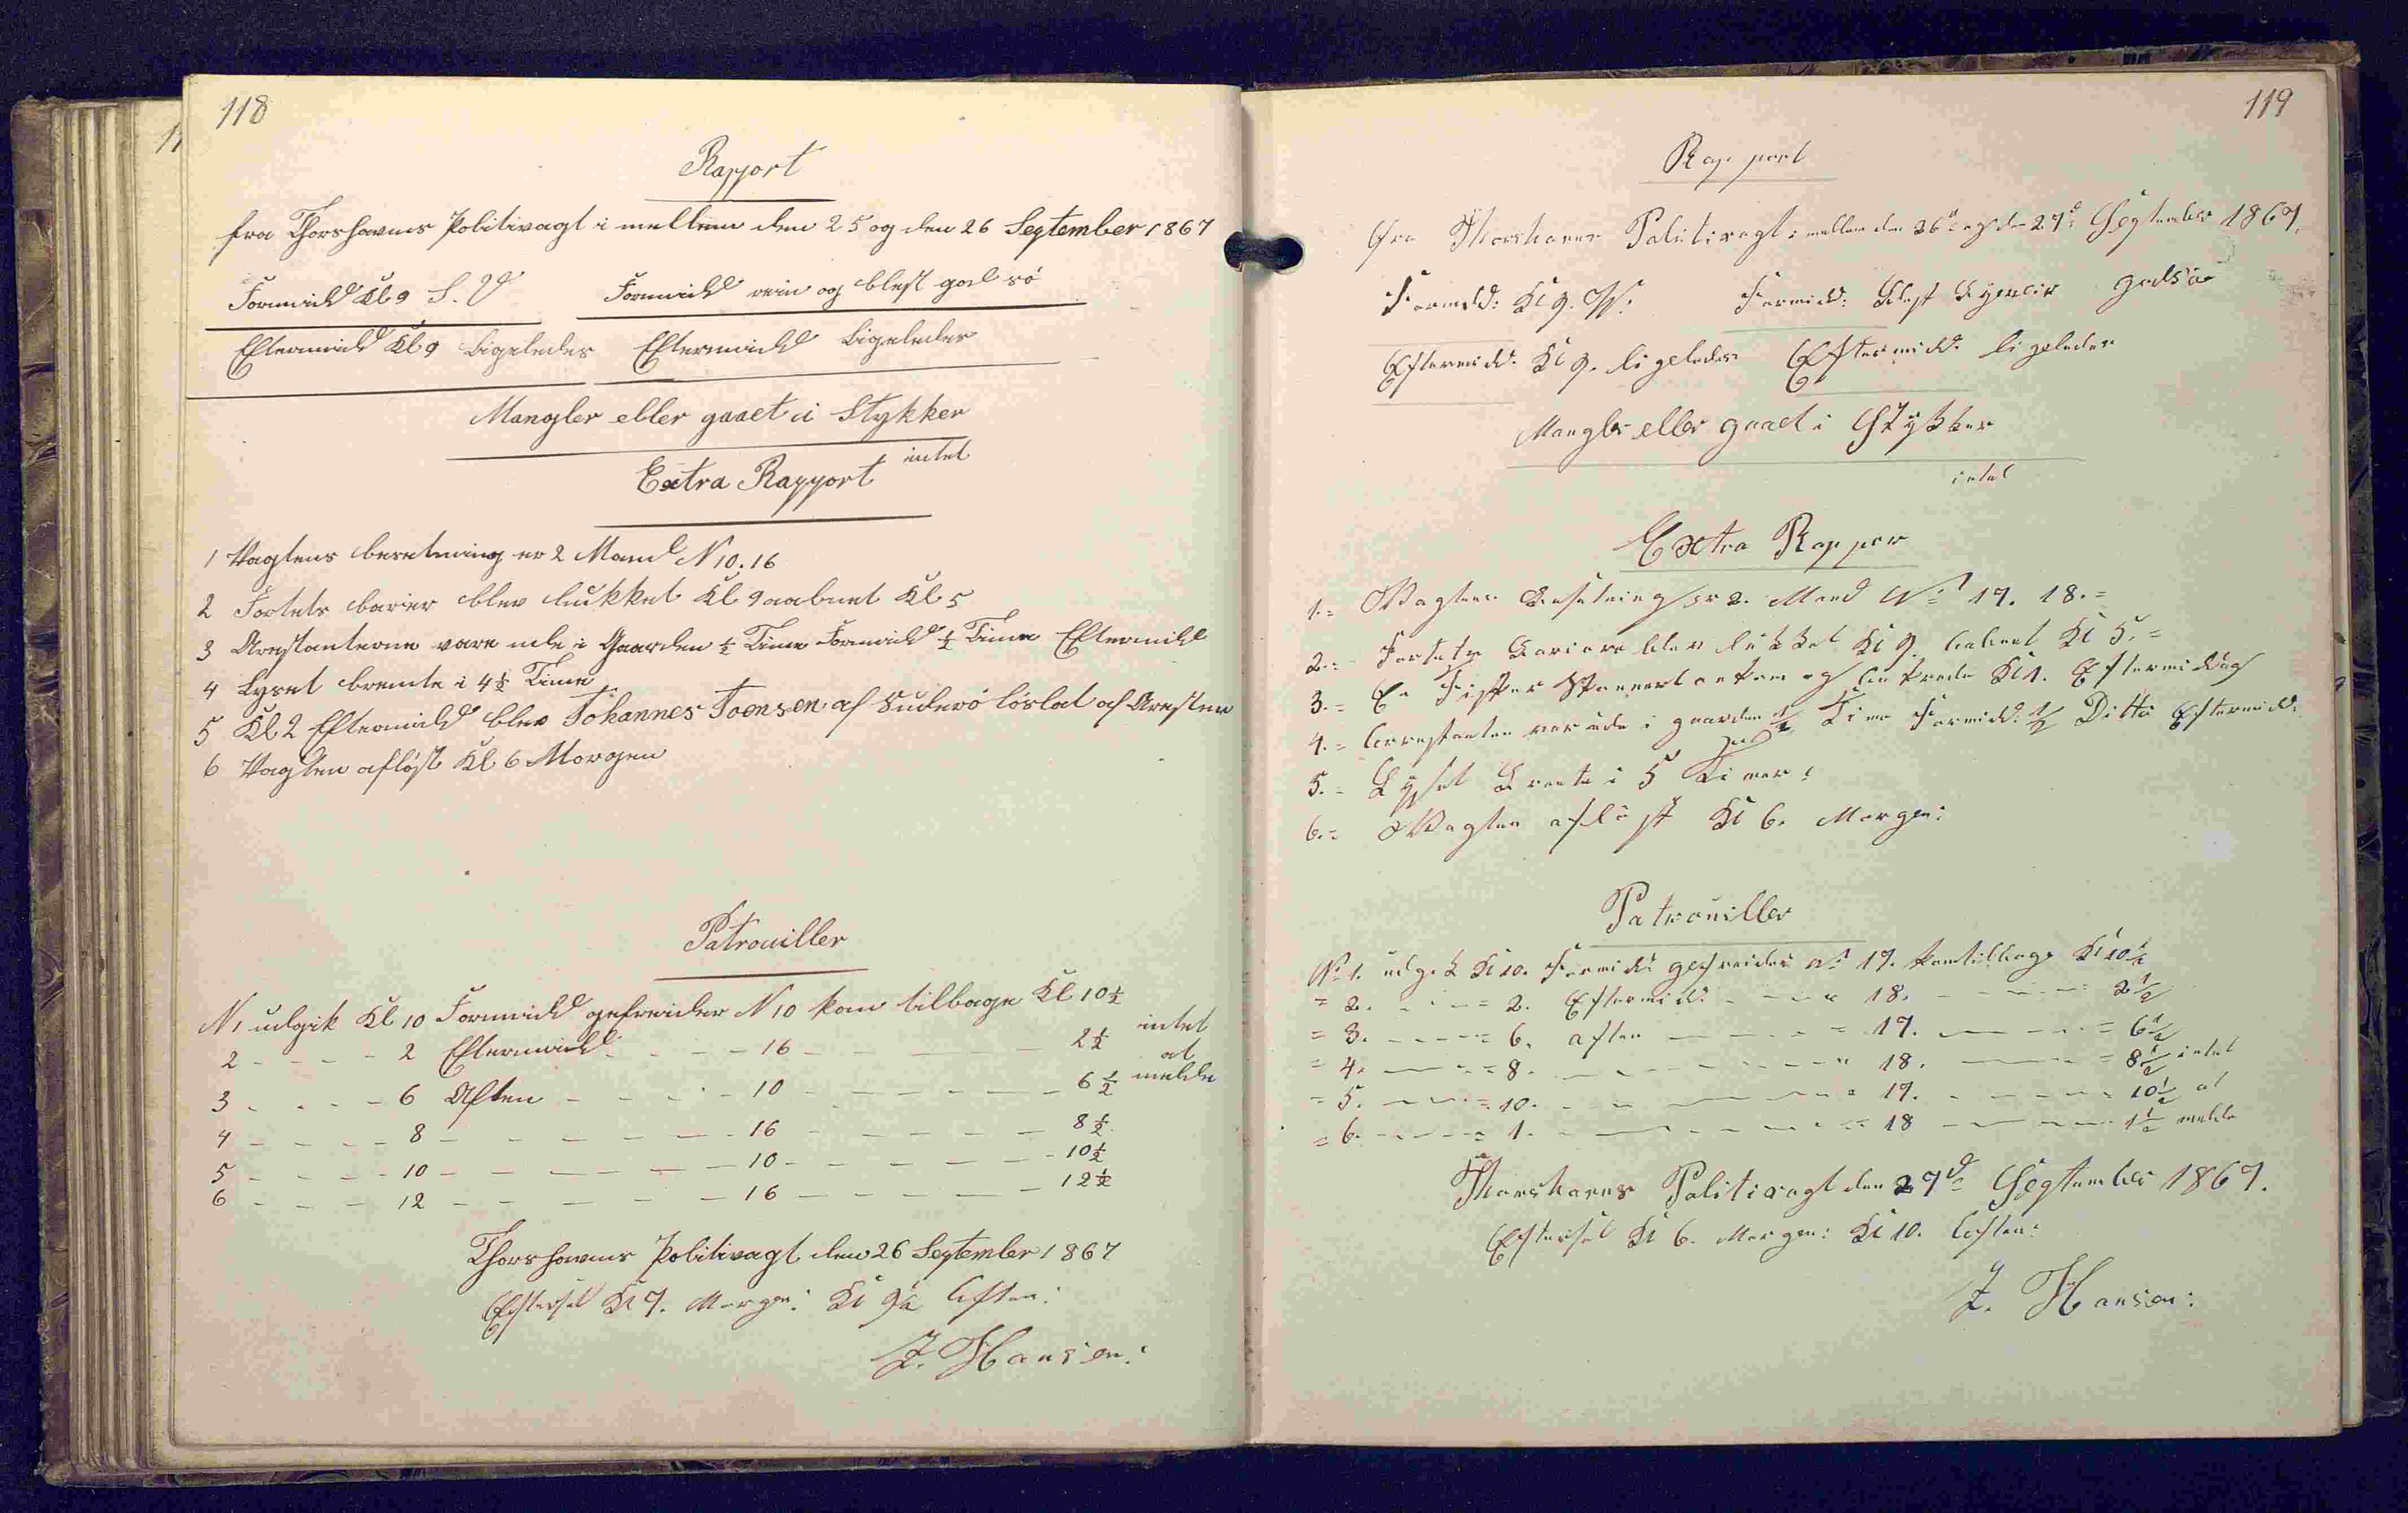 118
Rapport
fra Thorshavns Politivagt i mellem den 25 og den 26 September 1867
Formidd Kl 9 S. V Formidd rein og blest god sö
Eftermidd Kl 9 ligeledes Eftermidd ligeledes
Mangler eller gaaet i Stykker
intet
Extra Rapport
1 Vagtens besetning er 2 Mand N 10. 16
2 Fortets barier blev lukket Kl 9 aabnet Kl 5
3 Arestanterne vare ude i Gaarden ½ Time Formidd ½ Time Eftermidd
4 Lyset brente i 4½ Time
5 Kl 2 Eftermidd blev Johannes Joensen af Suderö löslat af Aresten
6 Vagten aflöst Kl 6 Morgen
Patrouiller
N 1 udgik Kl 10 Formidd gefreider N 10 kom tilbage Kl 10½
2 - - - - 2 Eftermidd - - - - 16 - - - - 2½ intet
3 - - - - 6 Aften - - - - 10 - - - - 6½ at melde
4 - - - - 8 - - - - 16 - - - - 8½
5 - - - - 10 - - - - 10 - - - - 10½
6 - - - - 12 - - - - 16 - - - - 12½
Thorshavns Politivagt den 26 September 1867
Efterset Kl 7. Morgen: Kl 9½ Aften:
J. Hansen:
119
Rapport
Fra Thorshavns Politivagt i mellem den 26d og den 27d September 1867.
Formidd: Kl 9. W. Formidd: Blest godsö
Eftermidd. Kl 9. ligeledes Eftermidd. ligeledes
Mangler eller gaaet i Stykker
intet
Extra Rappor
1.= Vagtens Besetning er 2. Mand No 17. 18.=
2.= Fortets Bariere blev lukket Kl 9. aabnet Kl 5.=
3.= En Fisker ankom og Kl 1. Eftermiddag
4.= Arrestanten var ude i gaarden ½ Time Formidd. ½ Ditto Eftermidd.
5.= Lyset Brente i 5 Timer:
6.= Vagten aflöst Kl 6. Morgen:
Patrouiller
No 1. udgik Kl 10. Formidd: gefreider No 17. kom tilbage Kl 10½
= 2. - - = 2. Eftermidd. - - - = 18. - - - - 2½
= 3. - - - = 6. aften - - - = 17. - - - = 6½
= 4. - - = 8. - - - - = 18. - - - = 8½ intet
= 5. - - = 10. - - - - = 17. - - - = 10½ at
= 6. - - - = 1. - - - - = 18 - - - - 1½ melde
Thorshavns Politivagt den 27d September 1867.
Efterset Kl 6. Morgen: Kl 10. Aften:
J. Hansen: